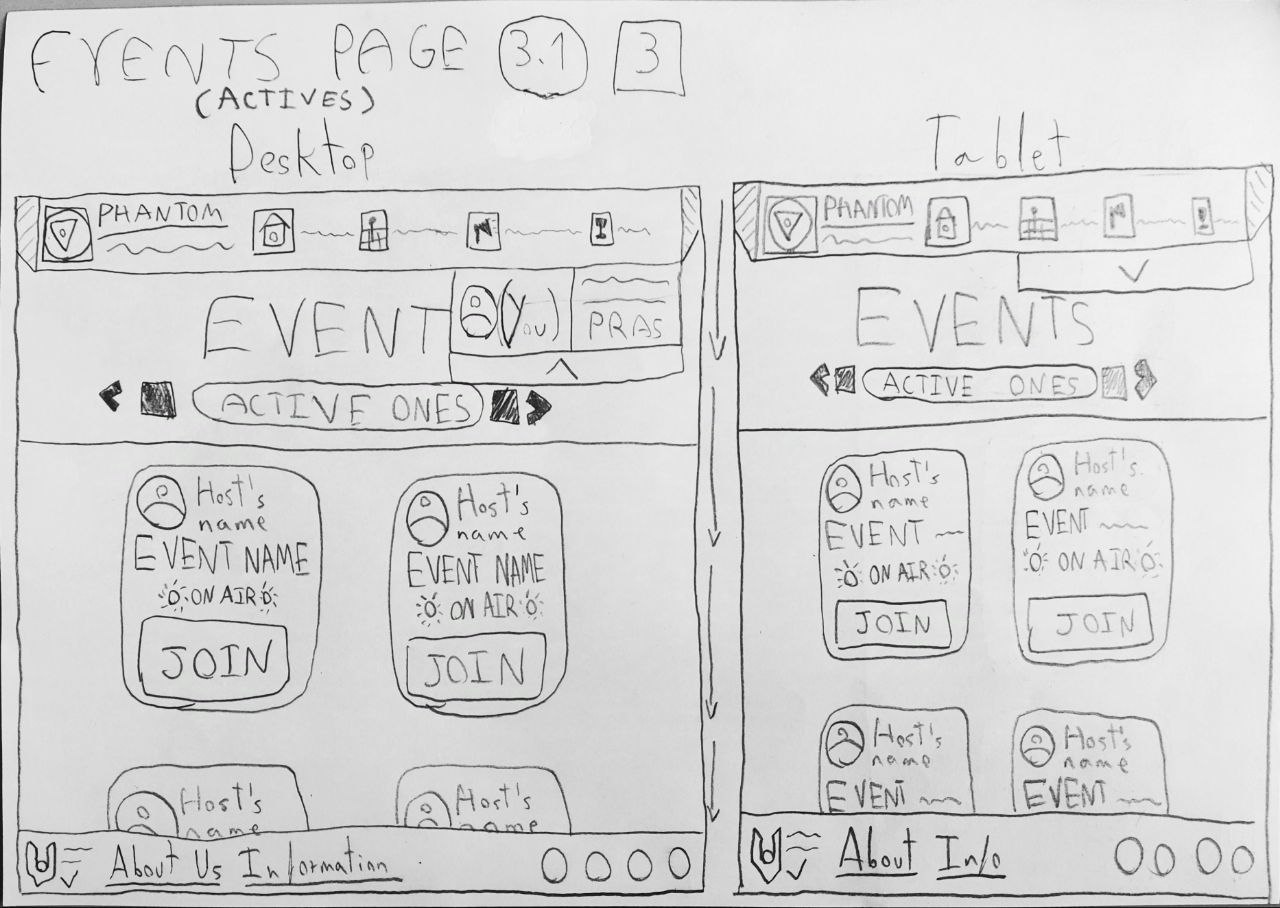 EVENTS PAGE 3.1 3
(ACTIVES)
Desktop
PHANTOM
EVENT
(You)
PRAS
ACTIVE ONES
Host's
name
EVENT NAME
ON AIR
JOIN
Host's
name
EVENT NAME
ON AIR
JOIN
Host's
name
Host's
name
About Us Information
Tablet
PHANTOM
EVENTS
ACTIVE ONES
Host's
name
EVENT
ON AIR
JOIN
Host's
name
EVENT
ON AIR
JOIN
Host's
name
EVENT
Host's
name
EVENT
About Info